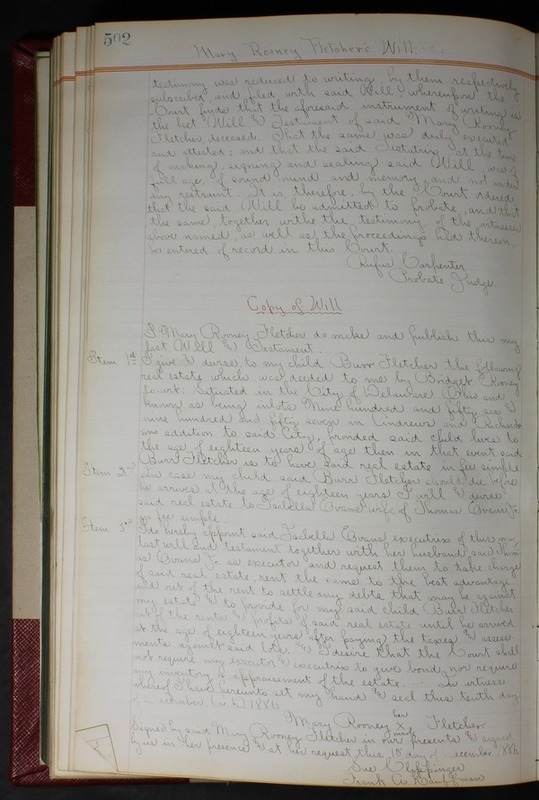 502
Mary Rooney Fletcher's Will.
testimony was reduced to writing by them respectively
subscribed and filed with said Will, whereupon the
Court finds that the aforesaid instrument of writing is
the last Will & Testament of said Mary Rooney
Fletcher, deceased. That the same was duly executed
and attested; and that the said Testatrix at the time
of making, signing and sealing said Will, was of
full age, of sound mind and memory, and not under
any restraint. It is therefore, by the Court ordered
that the said Will be admitted to probate, and that
the same, together with the testimony of the witnesses
above named, as well as the proceedings had thereon,
be entered of record in this Court.
Rufus Carpenter
Probate Judge.
Copy of Will
I Mary Rooney Fletcher do make and publish this my
last Will & Testament.
Item 1st I give & devise to my child Burr Fletcher the following
real estate which was deeded to me by Bridget Rooney
to-wit: Situated in the City of Delaware Ohio and
known as being inlots Nine hundred and fifty six &
nine hundred and fifty seven in Andrews and
addition to said City, provided said child lives to
the age of eighteen years of age then in that event said
Burr Fletcher is to have said real estate in fee simple
Item 2nd In case my child said Burr Fletcher should die before
he arrives at the age of eighteen years I will & devise
said real estate to Isabella Evans wife of Thomas Evans Jr.
in fee simple
Item 3rd I do hereby appoint said Isabella Evans executrix of this my
last will and testament together with her husband said Thom
as Evans Jr. as executor and request them to take charge
of said real estate, rent the same to the best advantage
and out of the rent to settle any debts that may be against
my estate & to provide for my said child Burr Fletcher
out of the rents & profits of said real estate until he arrives
at the age of eighteen years after paying the taxes & assess-
ments against said lots. & I desire that the Court shall
not require my executor & executrix to give bond, nor require
any inventory & appraisement of the estate. In witness
whereof I have hereunto set my hand & seal this tenth day
1886
her
Mary Rooney X Fletcher
mark
Signed by said Mary Rooney Fletcher in our presents & signed
by us in her presence & at her request this 10 day of December 1886
Sue Clippinger
Frank A. Kauffman